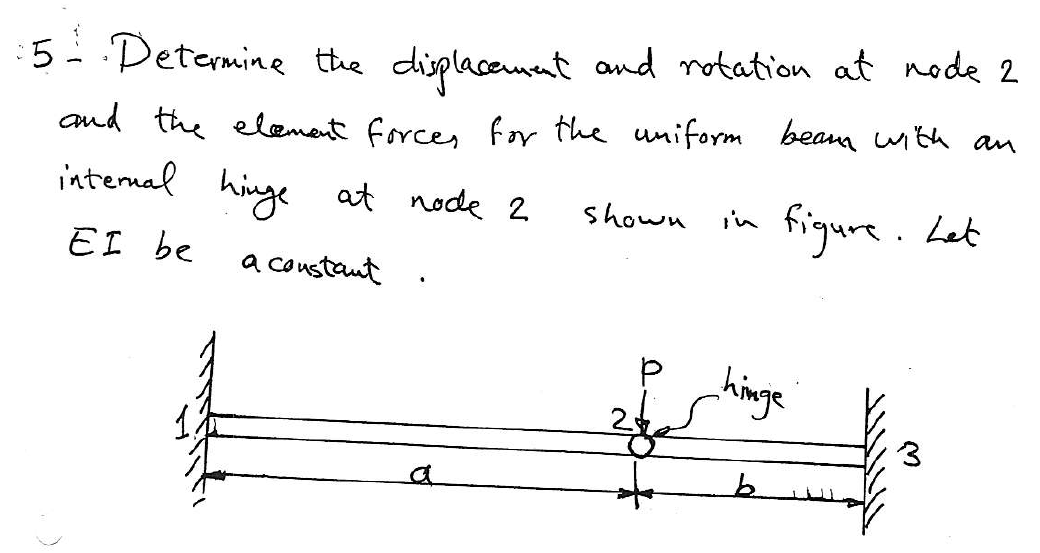 5- Determine the displacement and rotation at node 2
and the element forces for the uniform beam with an
internal hinge at node 2 shown in figure. Let
EI be a constant.
P hinge
1 2 3
a b